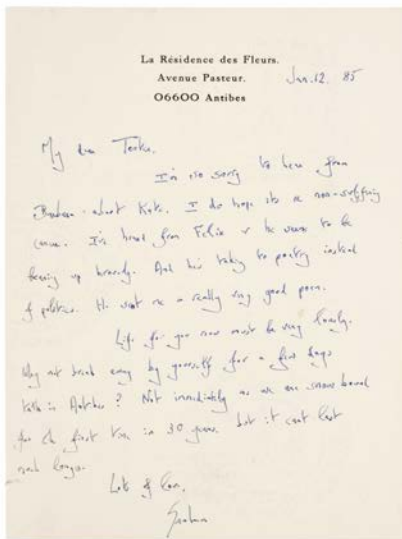 La Résidence des Fleurs.
Avenue Pasteur.
06600 Antibes
Jan. 12. 85
My dear
I'm so sorry to hear from
Barbara about Kate. I do hope its a non-suffering
I've heard from Felix & he seems to be
bearing up bravely. And he's taking to poetry instead
of politics. He sent me a really very good poem.
Life for you now must be very lonely.
Why not break away by yourself for a few days
in Antibes? Not immediately as we are snow bound
for the first time in 30 years. but it can't last
much longer.
Lots of love,
Graham